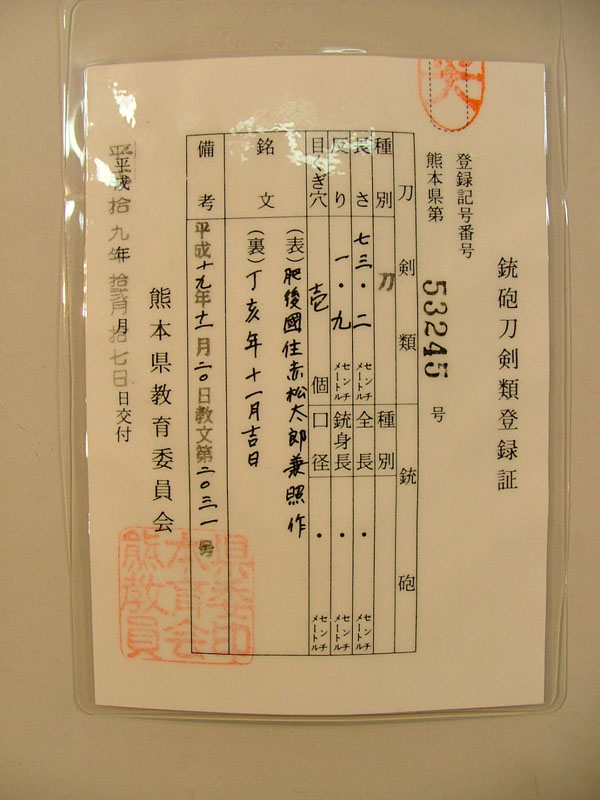 銃砲刀剣類登録証
登録記号番号
熊本県第 53245 号
刀剣類
種別 刀
長さ 七三・二 センチメートル
反り 一・九 センチメートル
目くぎ穴 壱 個
銃砲
種別
全長 ・ センチメートル
銃身長 ・ センチメートル
口径 ・ センチメートル
銘文
(表)肥後國住赤松太郎兼照作
(裏)丁亥年十一月吉日
備考
平成十九年十一月二〇日教文第二〇三一号
熊本県教育委員会
平成拾九年拾弐月拾七日交付
熊本県教育委員会印